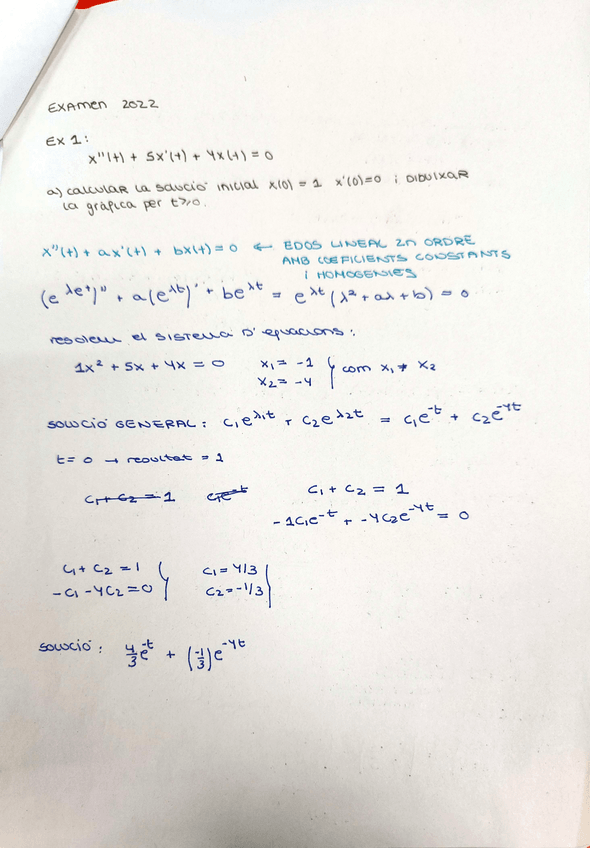 EXAMEN 2022
EX 1:
x''(t) + 5x'(t) + 4x(t) = 0
a) CALCULAR LA SOLUCIÓ INICIAL x(0) = 1 x'(0)=0 i DIBUIXAR
LA gràfica per t≥0.
x''(t) + ax'(t) + bx(t) = 0 ← EDOS LINEAL 2n ORDRE
AMB COEFICIENTS CONSTANTS
i HOMOGENIES
(e^λt)'' + a(e^λt)' + be^λt = e^λt (λ² + aλ + b) = 0
resolem el SISTEMA D'equacions:
1x² + 5x + 4x = 0 x₁ = -1 } com x₁ ≠ x₂
x₂ = -4
SOLUCIÓ GENERAL: c₁e^λ₁t + c₂e^λ₂t = c₁e^-t + c₂e^-4t
t = 0 → resultat = 1
c₁ + c₂ = 1 c₁e^-t c₁ + c₂ = 1
-1c₁e^-t + -4c₂e^-4t = 0
c₁ + c₂ = 1 } c₁ = 4/3 }
-c₁ - 4c₂ = 0 c₂ = -1/3
SOLUCIÓ: 4/3 e^-t + (-1/3) e^-4t